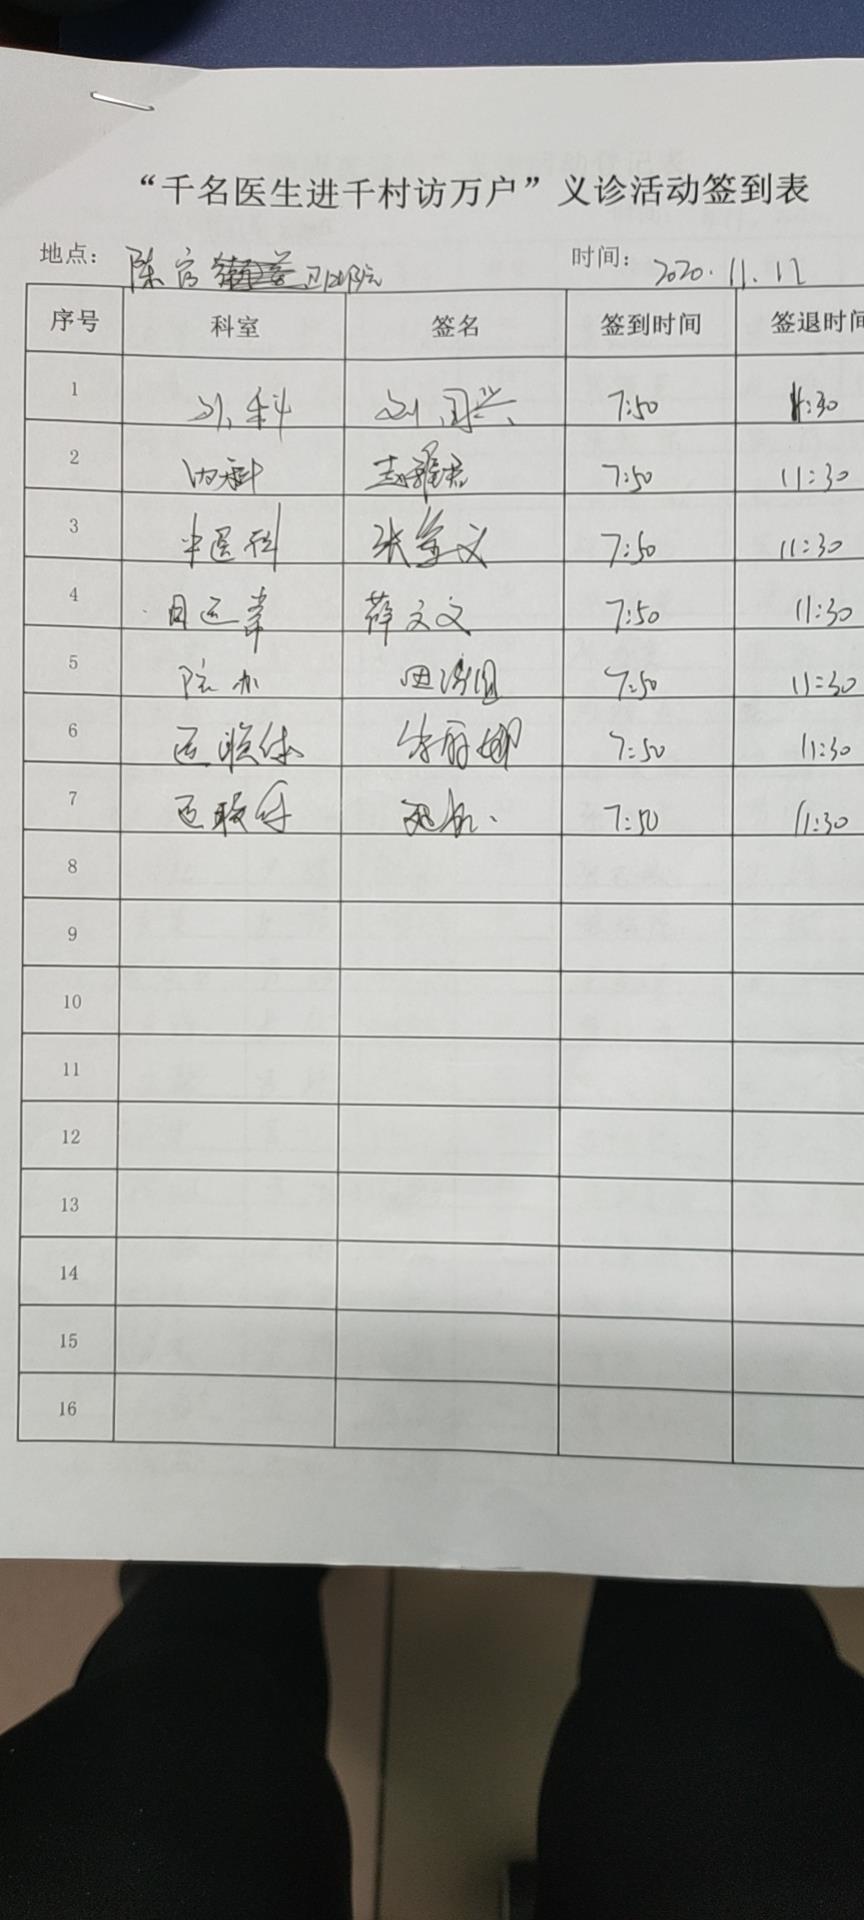 “千名医生进千村访万户”义诊活动签到表
地点：陈官 卫生院 时间：2020.11.12
序号 科室 签名 签到时间 签退时间
1 外科 刘国兴 7:50 11:30
2 内科 7:50 11:30
3 中医科 张学义 7:50 11:30
4 口腔 薛文文 7:50 11:30
5 院办 7:50 11:30
6 医联体 7:50 11:30
7 医联体 7:50 11:30
8
9
10
11
12
13
14
15
16